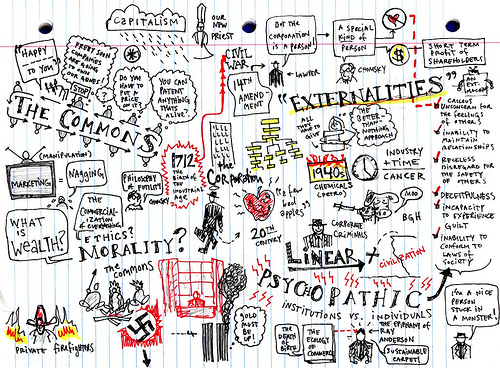 CAPITALISM
OUR
NEW
PRIEST
"HAPPY
TO YOU"
PRETTY SOON
COMPANIES
ARE GOING
TO OWN
OUR GENES!
STOP
DO YOU
HAVE TO
PUT A
PRICE
ON IT?
YOU CAN
PATENT
ANYTHING
THAT'S
ALIVE?
THE COMMON$
CIVIL
WAR
14TH
AMEND
MENT
BUT THE
CORPORATION
IS A PERSON!
LAWYER
A SPECIAL
KIND OF
PERSON
CHOMSKY
$
SHORT TERM
PROFIT OF
SHAREHOLDERS
"EXTERNALITIES"
ALL
TAKE NO
GIVE
THE
BETTER
THAN
NOTHING
APPROACH
AN
EXT.
MACHINE
CALLOUS
UNCONCERN FOR
THE FEELINGS
OF OTHERS
INABILITY TO
MAINTAIN
RELATIONSHIPS
RECKLESS
DISREGARD FOR
THE SAFETY
OF OTHERS
DECEITFULNESS
INCAPACITY
TO EXPERIENCE
GUILT
INABILITY TO
CONFORM TO
LAWS OF
SOCIETY
(MANIPULATION)
MARKETING
=
NAGGING
PHILOSOPHY
OF FUTILITY
CHOMSKY
1712
THE BIRTH OF
THE INDUSTRIAL
AGE
the
Corporation
"a few
bad
apples"
1940s
CHEMICAL
(PETRO)
INDUSTRY
+ TIME
CANCER
MOO
BGH
WHAT
IS
WEALTH?
THE
COMMERCIAL-
IZATION
OF EVERYTHING
ETHICS?
MORALITY?
the commons
20TH
CENTURY
CORPORATE
CRIMINALS
LINEAR +
CIVILIZATION
PSYCHOPATHIC
INSTITUTIONS VS. INDIVIDUALS
PRIVATE FIREFIGHTERS
GOLD
MUST BE
UP!
THE
DEATH OF
BIRTH
THE
ECOLOGY
OF
COMMERCE
THE EPIPHANY OF
RAY
ANDERSON
SUSTAINABLE
CARPET!
I'M A NICE
PERSON
STUCK IN
A MONSTER!